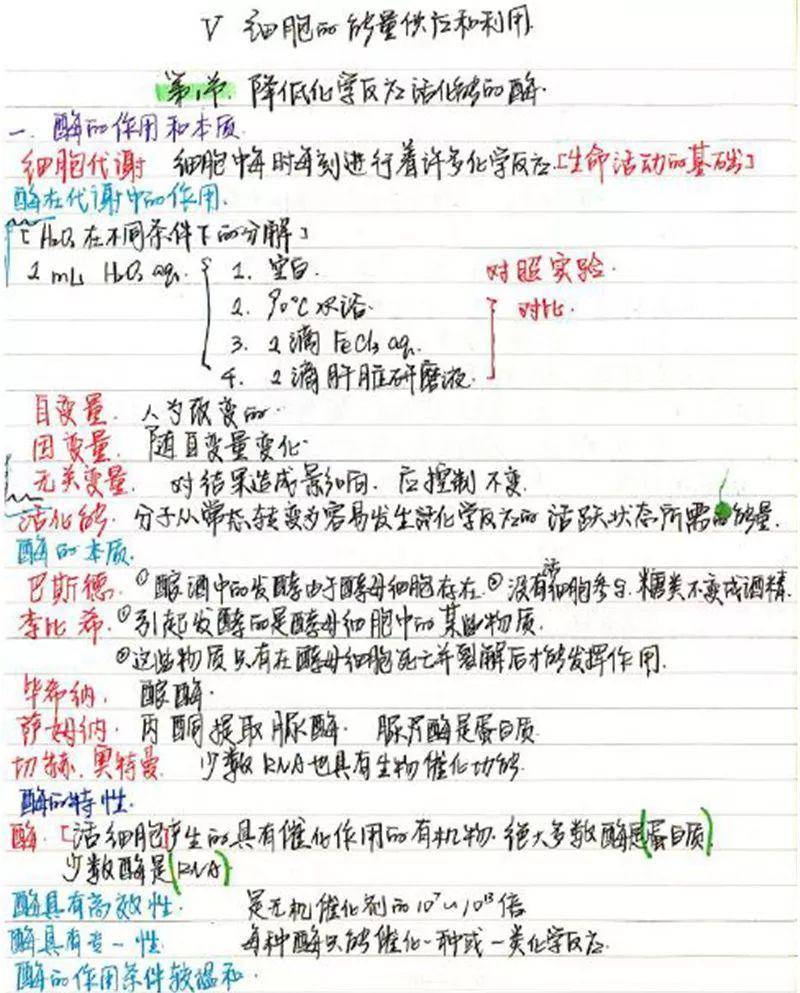 V 细胞的能量供应和利用
第1节. 降低化学反应活化能的酶.
一. 酶的作用和本质.
细胞代谢 细胞中每时每刻进行着许多化学反应.[生命活动的基础]
酶在代谢中的作用.
[H₂O₂在不同条件下的分解]
2 mL H₂O₂ aq. { 1. 空白. 对照实验.
2. 90℃水浴. 对比.
3. 2滴 FeCl₃ aq.
4. 2滴肝脏研磨液.
自变量. 人为改变的.
因变量. 随自变量变化.
无关变量. 对结果造成影响. 应控制不变.
活化能. 分子从常态转变为容易发生化学反应的活跃状态所需的能量.
酶的本质.
巴斯德. ①酿酒中的发酵由于酵母细胞存在. ②没有活细胞参与. 糖类不变成酒精.
李比希. ①引起发酵的是酵母细胞中的某些物质.
②这些物质只有在酵母细胞死亡并裂解后才能发挥作用.
毕希纳. 酿酶.
萨姆纳. 丙酮提取脲酶. 脲酶是蛋白质.
切赫. 奥特曼. 少数RNA也具有生物催化功能.
酶的特性.
酶.[活细胞]产生的具有催化作用的有机物. 绝大多数酶是(蛋白质)
少数酶是(RNA)
酶具有高效性. 是无机催化剂的10⁷~10¹³倍
酶具有专一性. 每种酶只能催化一种或一类化学反应.
酶的作用条件较温和.